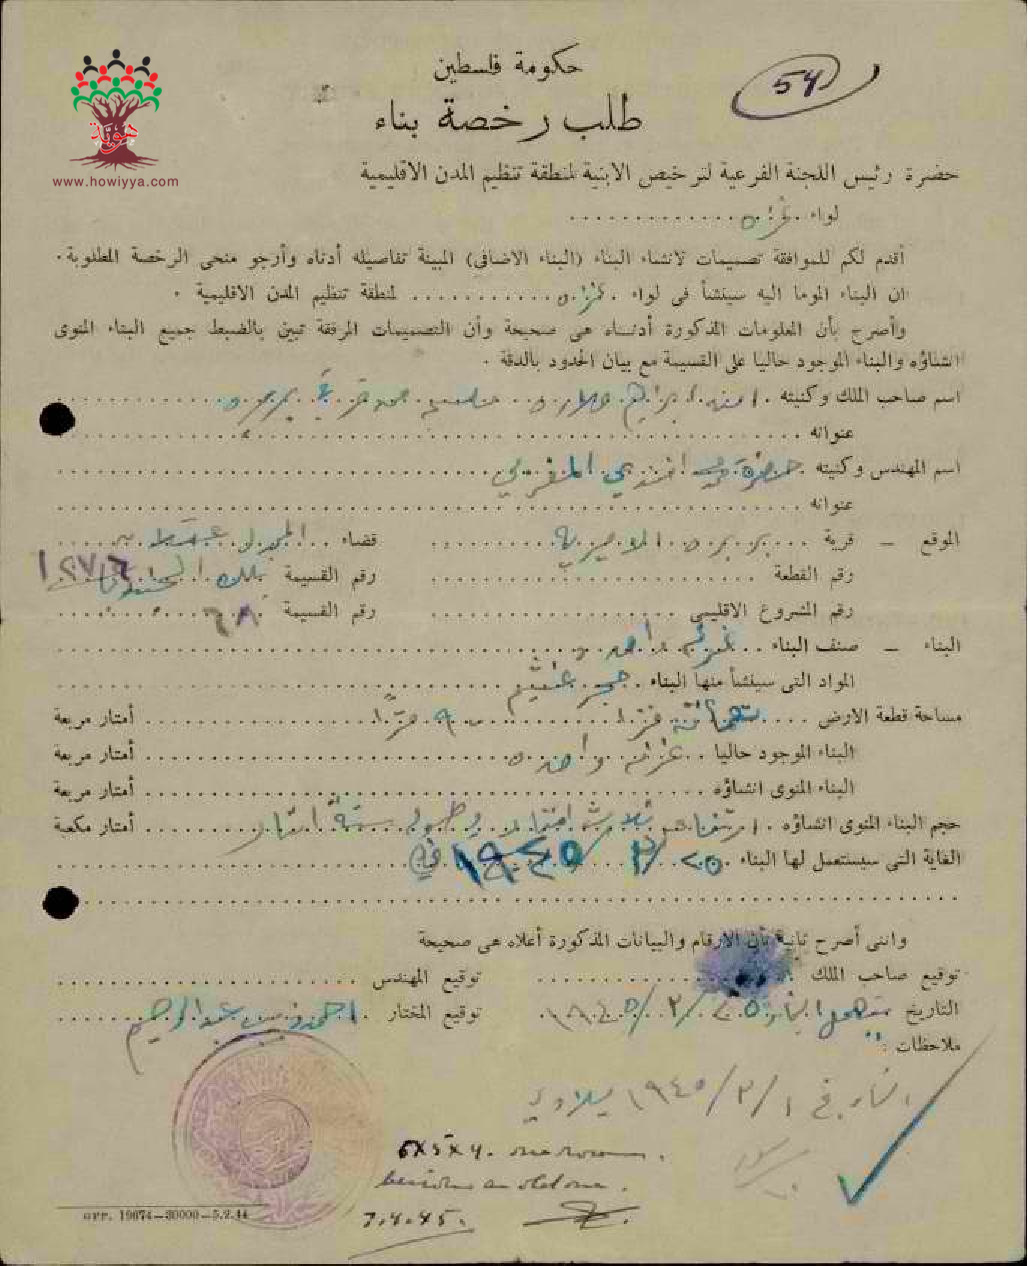 حكومة فلسطين
54
طلب رخصة بناء
هوية
www.howiyya.com
حضرة رئيس اللجنة الفرعية لترخيص الابنية لمنطقة تنظيم المدن الاقليمية
لواء غزه
أقدم لكم للموافقة تصميمات لانشاء البناء (البناء الاضافى) المبينة تفاصيله أدناه وأرجو منحى الرخصة المطلوبة.
ان البناء الموما اليه سينشأ فى لواء غزه لمنطقة تنظيم المدن الاقليمية .
وأصرح بأن المعلومات المذكورة أدناه هى صحيحة وأن التصميمات المرفقة تبين بالضبط جميع البناء المنوى
انشاؤه والبناء الموجود حاليا على القسيمة مع بيان الحدود بالدقة .
اسم صاحب الملك وكنيته ابراهيم
عنوانه
اسم المهندس وكنيته حضرة افندي المغربي
عنوانه
الموقع – قرية بربره قضاء المجدل
رقم القطعة رقم القسيمة ١٢٧٦
رقم المشروع الاقليمى رقم القسيمة ٦٨
البناء – صنف البناء غرفه واحده
المواد التى سينشأ منها البناء حجر غشيم
مساحة قطعة الارض أمتار مربعة
البناء الموجود حاليا غرفه واحده أمتار مربعة
البناء المنوى انشاؤه أمتار مربعة
حجم البناء المنوى انشاؤه ارتفاع ثلاث امتار وطول ستة امتار أمتار مكعبة
الغاية التى سيستعمل لها البناء ٢٥/٣/١٩٤٥ في
وانى أصرح ثانية بأن الارقام والبيانات المذكورة أعلاه هى صحيحة
توقيع صاحب الملك توقيع المهندس
التاريخ ٢٥/٢/١٩٤٥ توقيع المختار عبد الرحيم
ملاحظات :
التاريخ ١/٣/١٩٤٥ ميلادي
6x5x4. one room.
beside an old one.
7.4.45.
GPP. 19674—30000—5.2.44